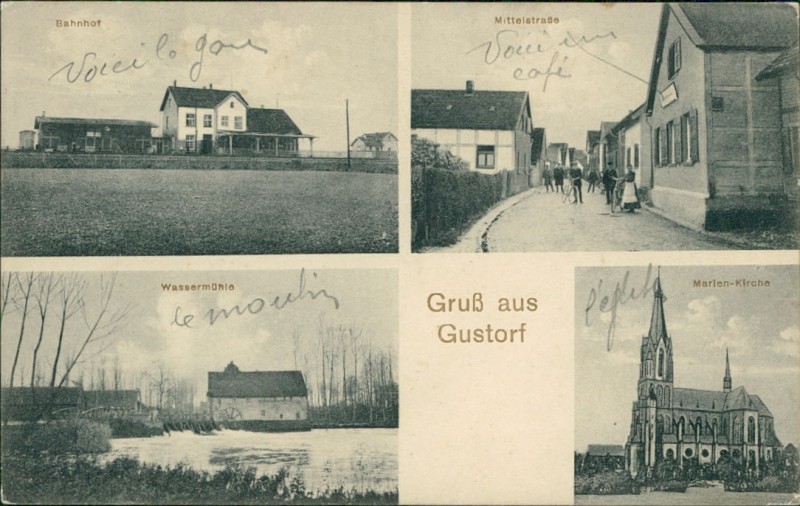 Bahnhof
Voici la gare
Mittelstraße
Voici un
café
Wassermühle
le moulin
Gruß aus
Gustorf
l'église
Marien-Kirche